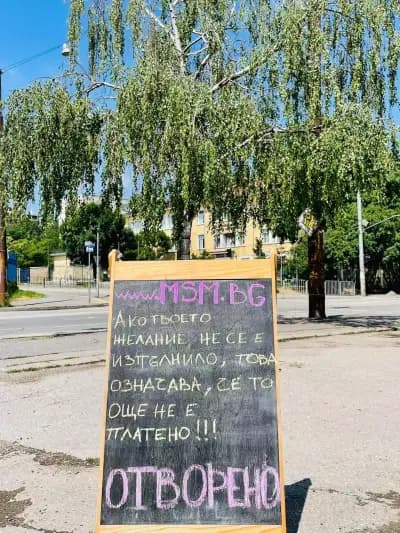 www.MSM.BG
АКО ТВОЕТО
ЖЕЛАНИЕ, НЕ СЕ Е
ИЗПЪЛНИЛО, ТОВА
ОЗНАЧАВА, ЧЕ ТО
ОЩЕ НЕ Е
ПЛАТЕНО!!!
ОТВОРЕНО